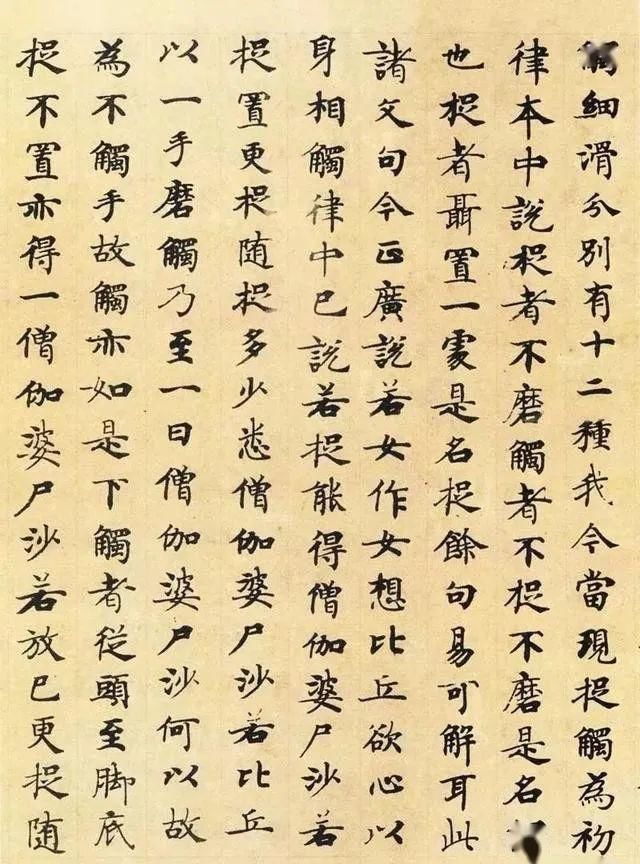 細滑分別有十二種我今當現捉觸為初
律本中說捉者不磨觸者不捉不磨是名
也捉者聶置一處是名捉餘句易可解耳此
諸文句今正廣說若女作女想比丘欲心以
身相觸律中已說若捉能得僧伽婆尸沙若
捉置更捉随捉多少悉僧伽婆尸沙若比丘
以一手磨觸乃至一日僧伽婆尸沙何以故
為不觸手故觸亦如是下觸者從頭至脚底
捉不置亦得一僧伽婆尸沙若放已更捉随